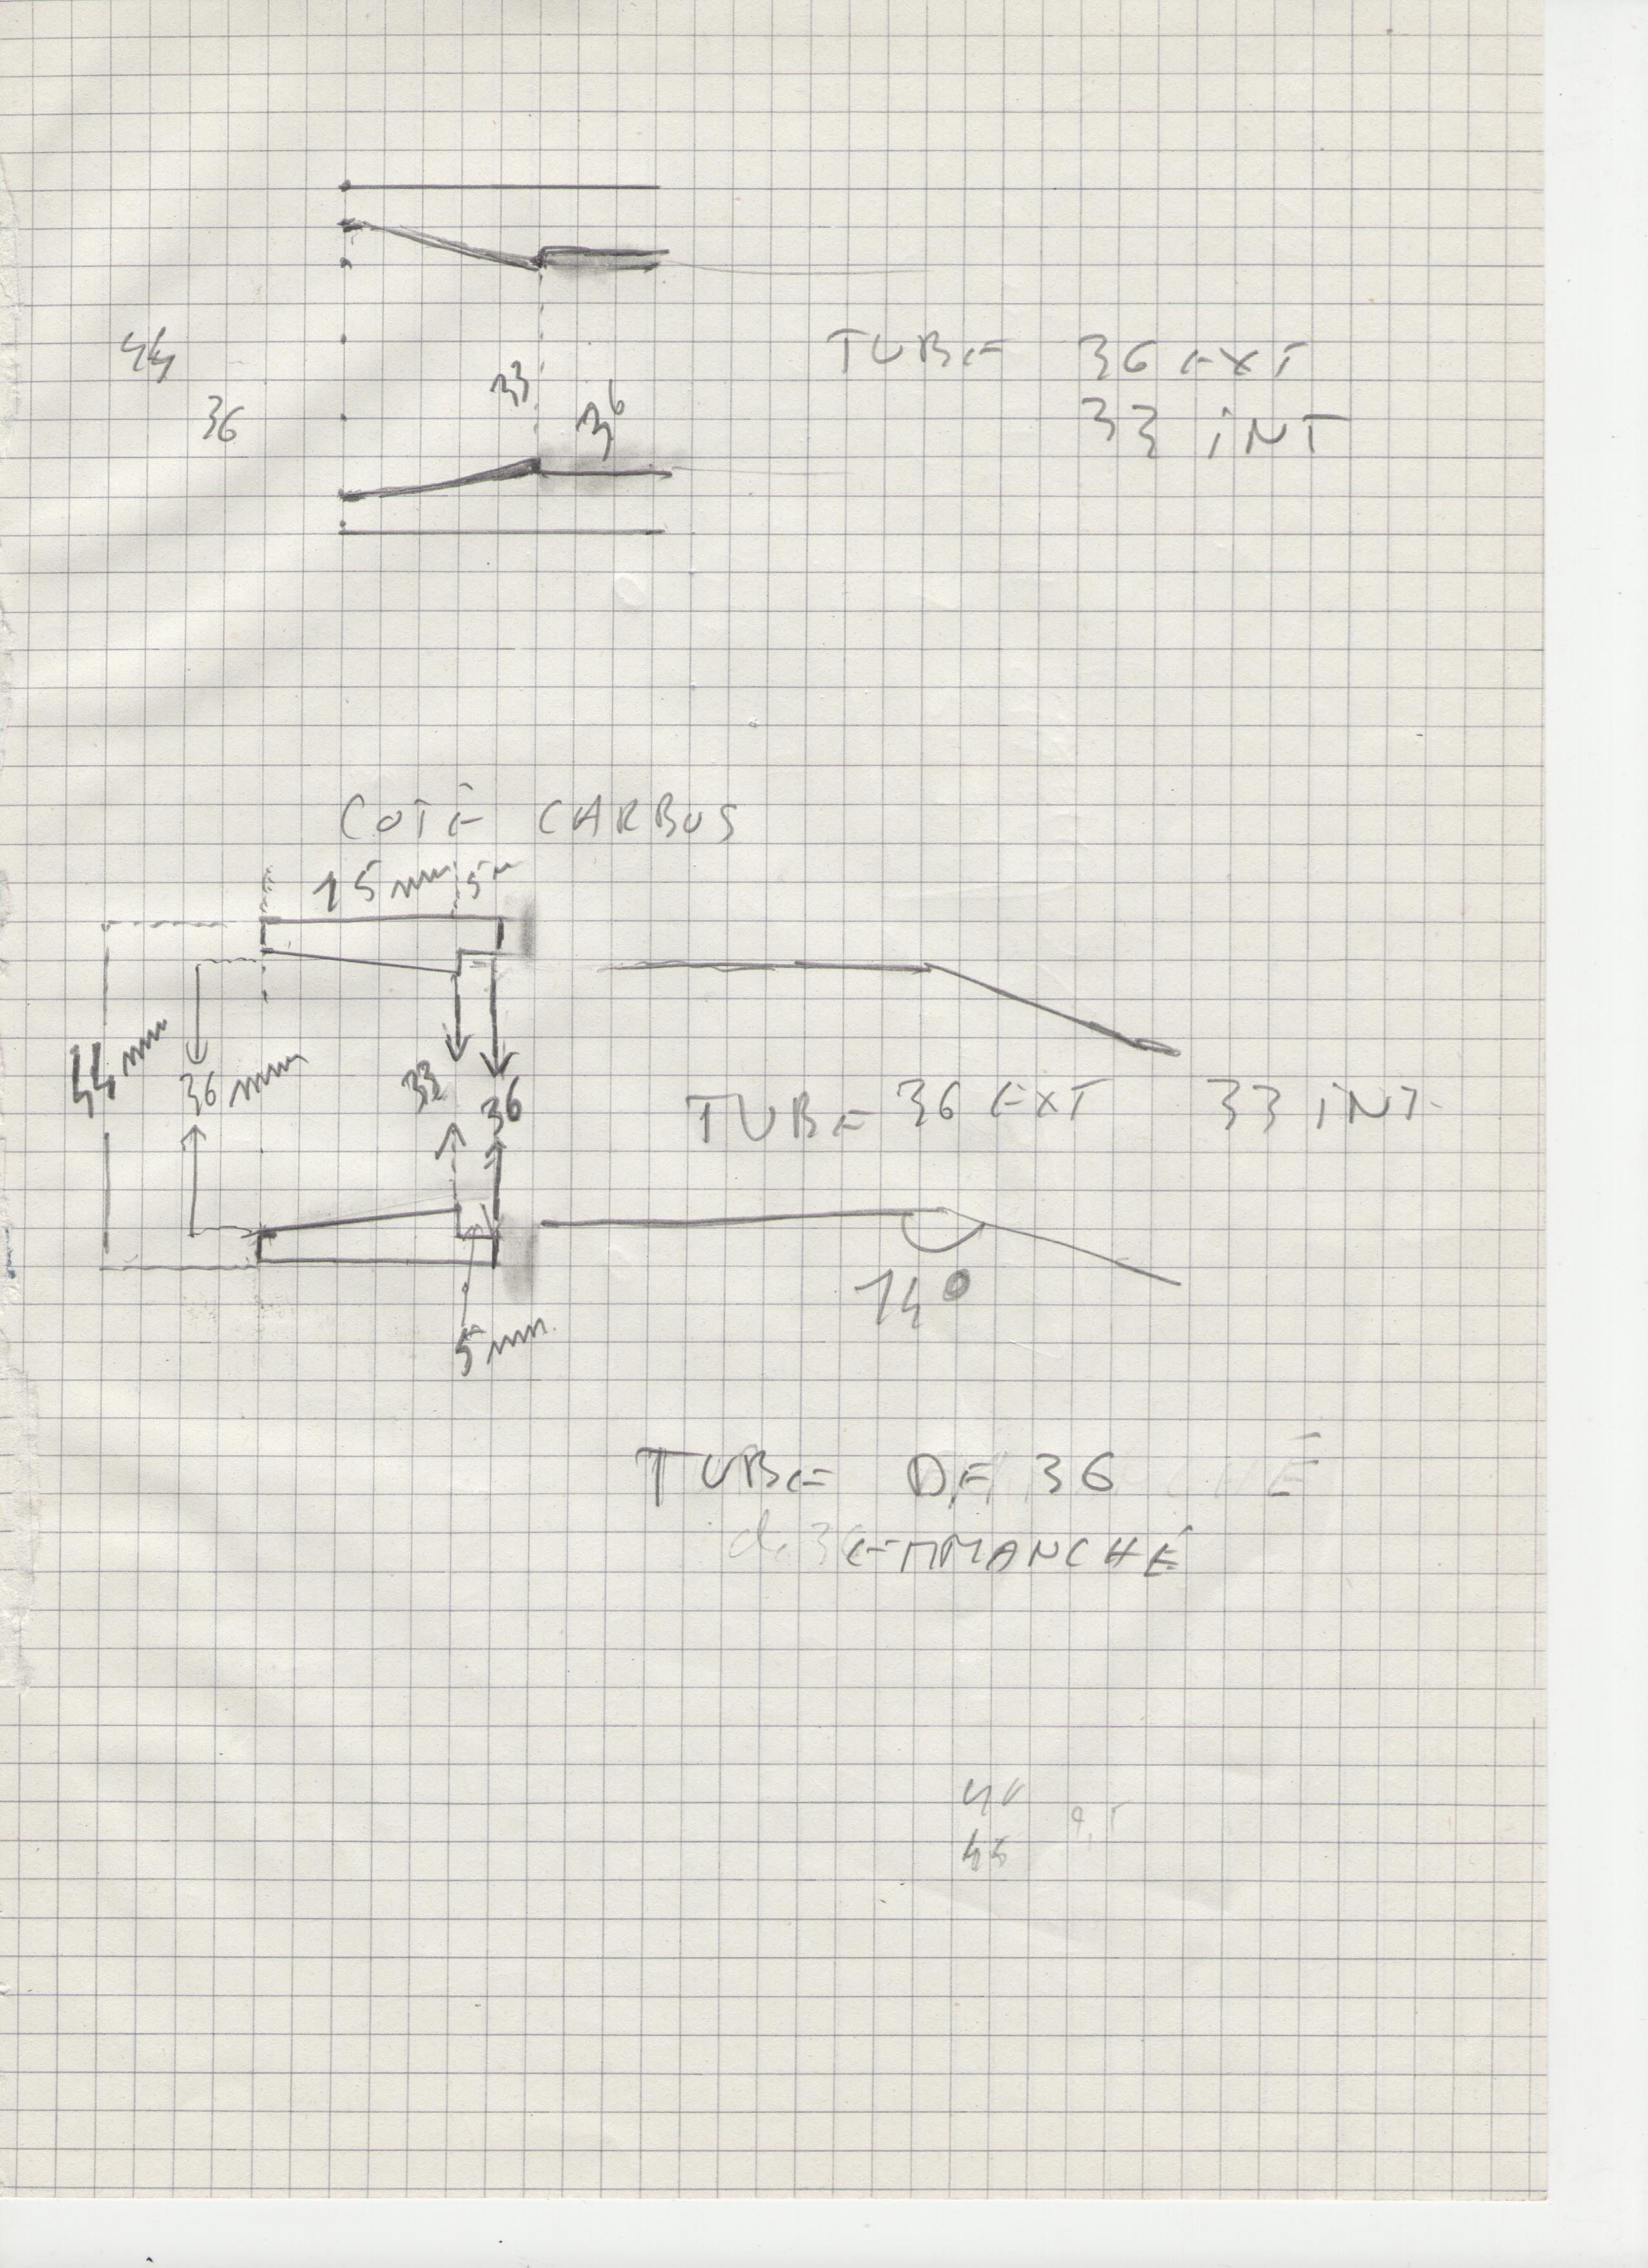 44
36
33
36
TUBE 36 EXT
33 INT
COTÉ CARBUS
15 mm 5m
44 mm
36 mm
33
36
TUBE 36 EXT 33 INT.
14°
5 mm
TUBE DE 36
EMMANCHÉ